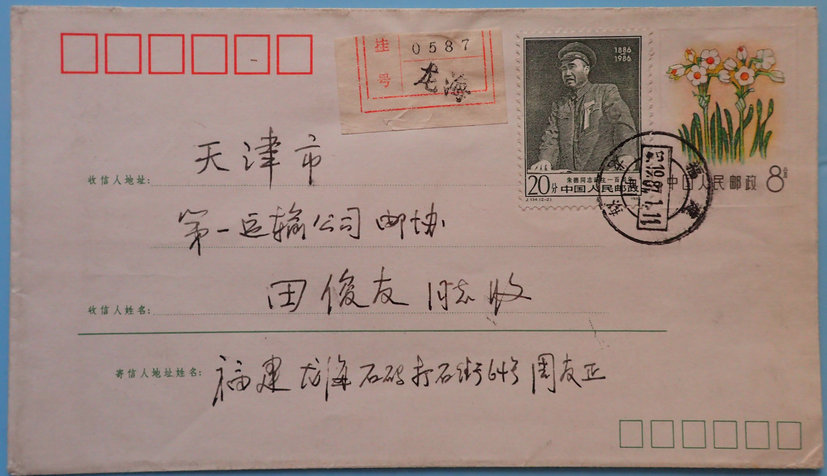 挂 0587
号 龙海
1886
1986
朱德同志诞生一百周年
20分 中国人民邮政
J.134.(2-2)
中国人民邮政 8分
福建
1987.1.11
收信人地址: 天津市
第一运输公司邮协
收信人姓名: 田俊友 同志收
寄信人地址姓名: 福建龙海石码打石街64号 周友正